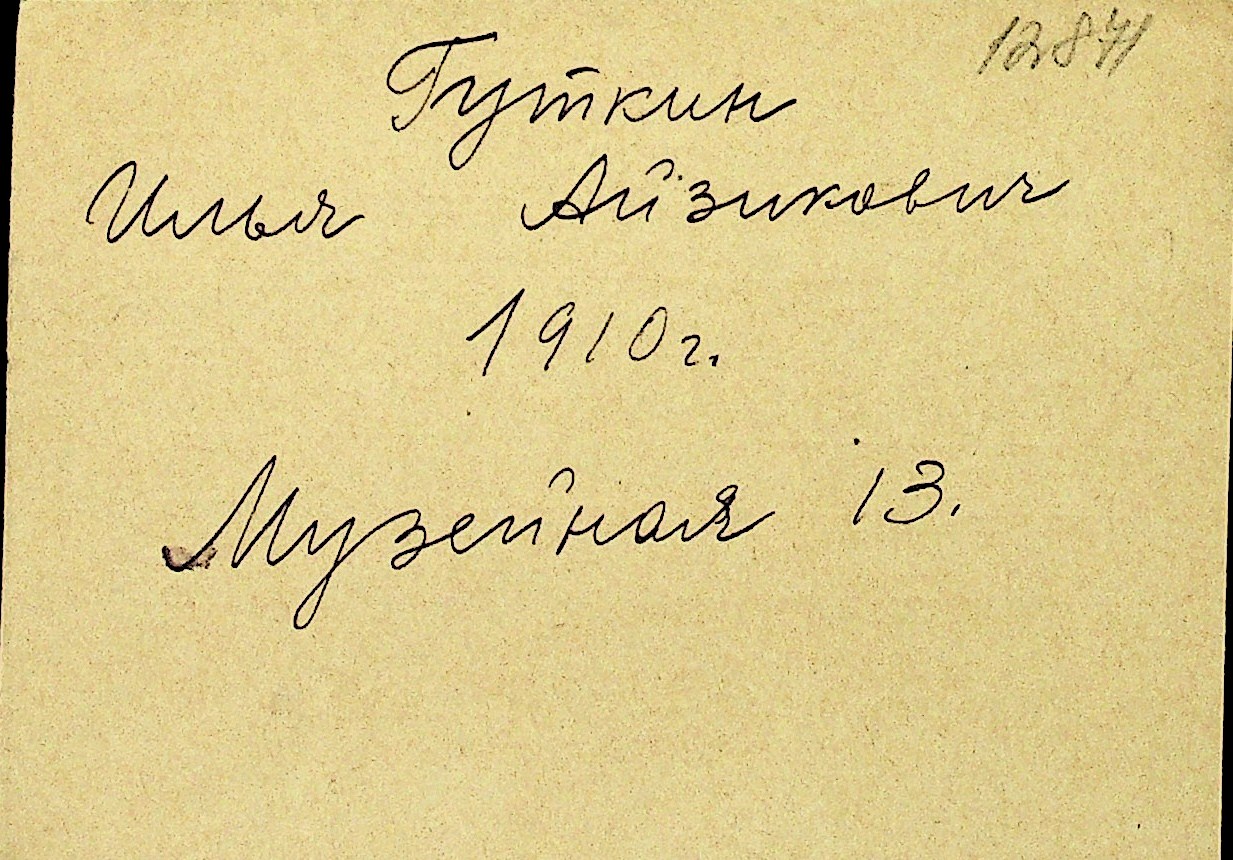 12871
Гуткин
Илья Айзикович
1910 г.
Музейная 13.